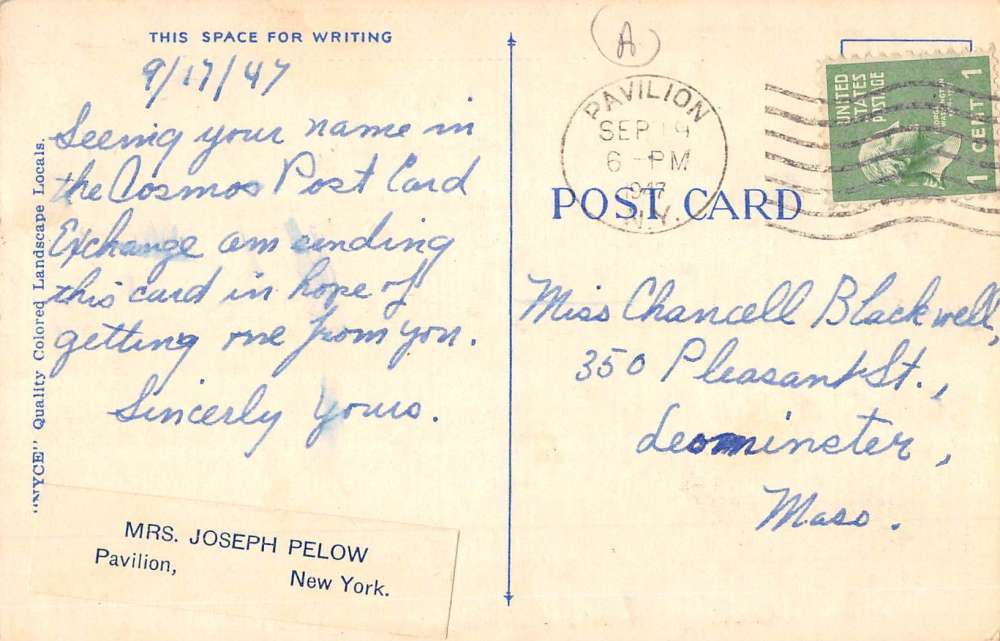 THIS SPACE FOR WRITING
9/17/47
Seeing your name in
the Cosmos Post Card
Exchange am sending
this card in hope of
getting one from you.
Sincerly Yours.
MRS. JOSEPH PELOW
Pavilion,
New York.
"NYCE" Quality Colored Landscape Locals.
A
PAVILION
SEP 19
6 - PM
1947
N.Y.
UNITED
STATES
POSTAGE
1 CENT 1
POST CARD
Miss Chancell Blackwell,
350 Pleasant St.,
Leominster,
Mass.